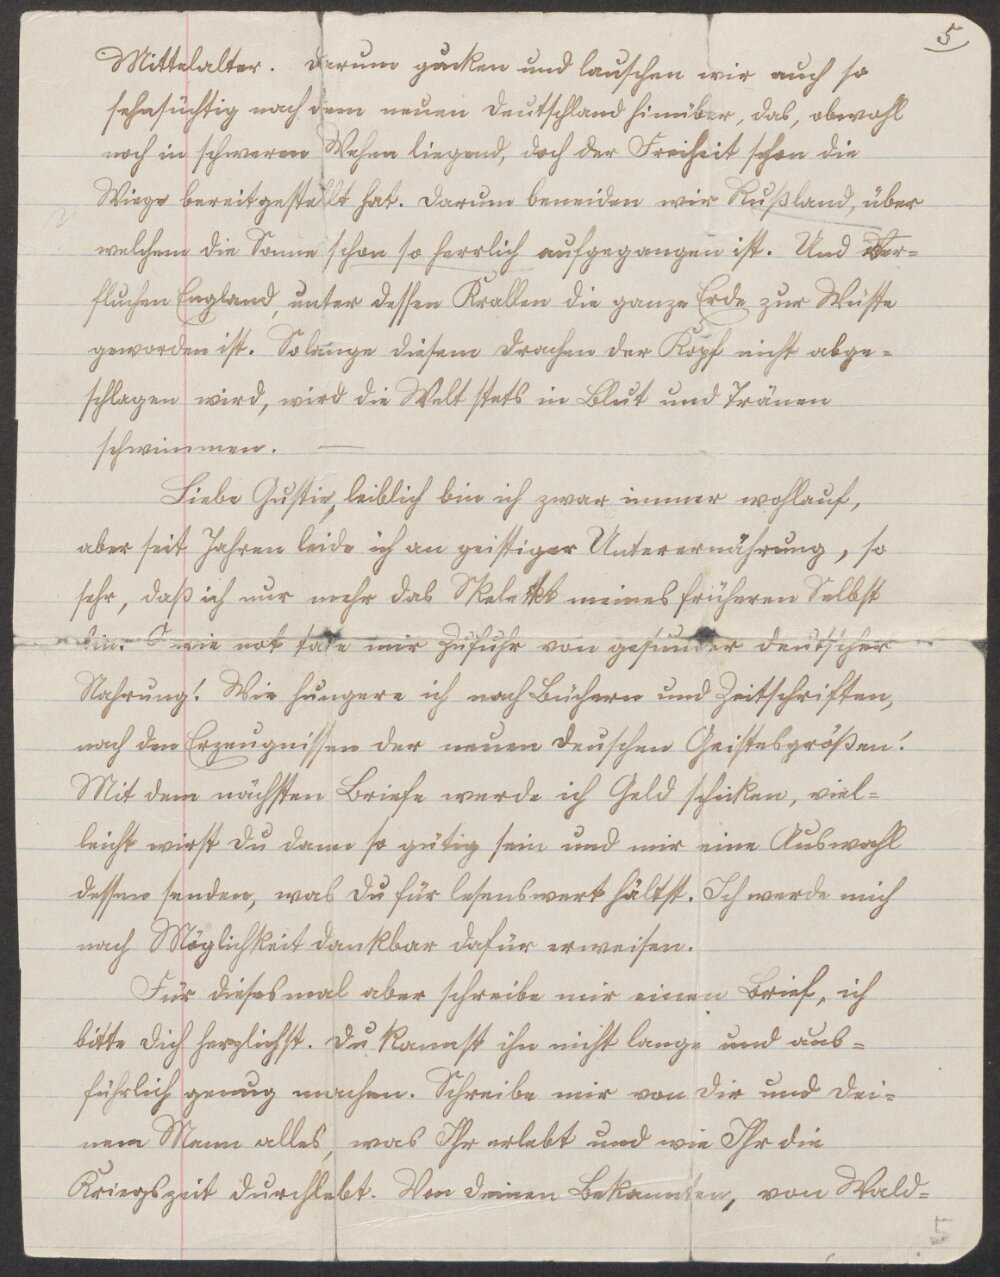 5
Mittelalter. Darum gucken und lauschen wir auch so
sehnsüchtig nach dem neuen Deutschland hinüber, das, obwohl
noch in schweren Wehen liegend, doch der Freiheit schon die
Wiege bereitgestellt hat. Darum beneiden wir Rußland, über
welchem die Sonne schon so herrlich aufgegangen ist. Und ver-
fluchen England, unter dessen Krallen die ganze Erde zur Wüste
geworden ist. Solange diesem Drachen der Kopf nicht abge-
schlagen wird, wird die Welt stets in Blut und Tränen
schwimmen. —
Liebe Gustie, leiblich bin ich zwar immer wohlauf,
aber seit Jahren leide ich an geistiger Unterernährung, so
sehr, daß ich nur mehr das Skelett meines früheren Selbst
bin. O wie not täte mir Zufuhr von gesunder deutscher
Nahrung! Wie hungere ich nach Büchern und Zeitschriften,
nach den Erzeugnissen der neuen deuschen Geistesgrößen!
Mit dem nächsten Briefe werde ich Geld schicken, viel-
leicht wirst Du dann so gütig sein und mir eine Auswahl
dessen senden, was Du für lesenswert hältst. Ich werde mich
nach Möglichkeit dankbar dafür erweisen.
Für diesesmal aber schreibe mir einen Brief, ich
bitte Dich herzlichst. Du kannst ihn nicht lange und aus-
führlich genug machen. Schreibe mir von Dir und Dei-
nem Mann alles, was Ihr erlebt und wie Ihr die
Kriegszeit durchlebt. Von Deinen Bekannten, von Wald-
5